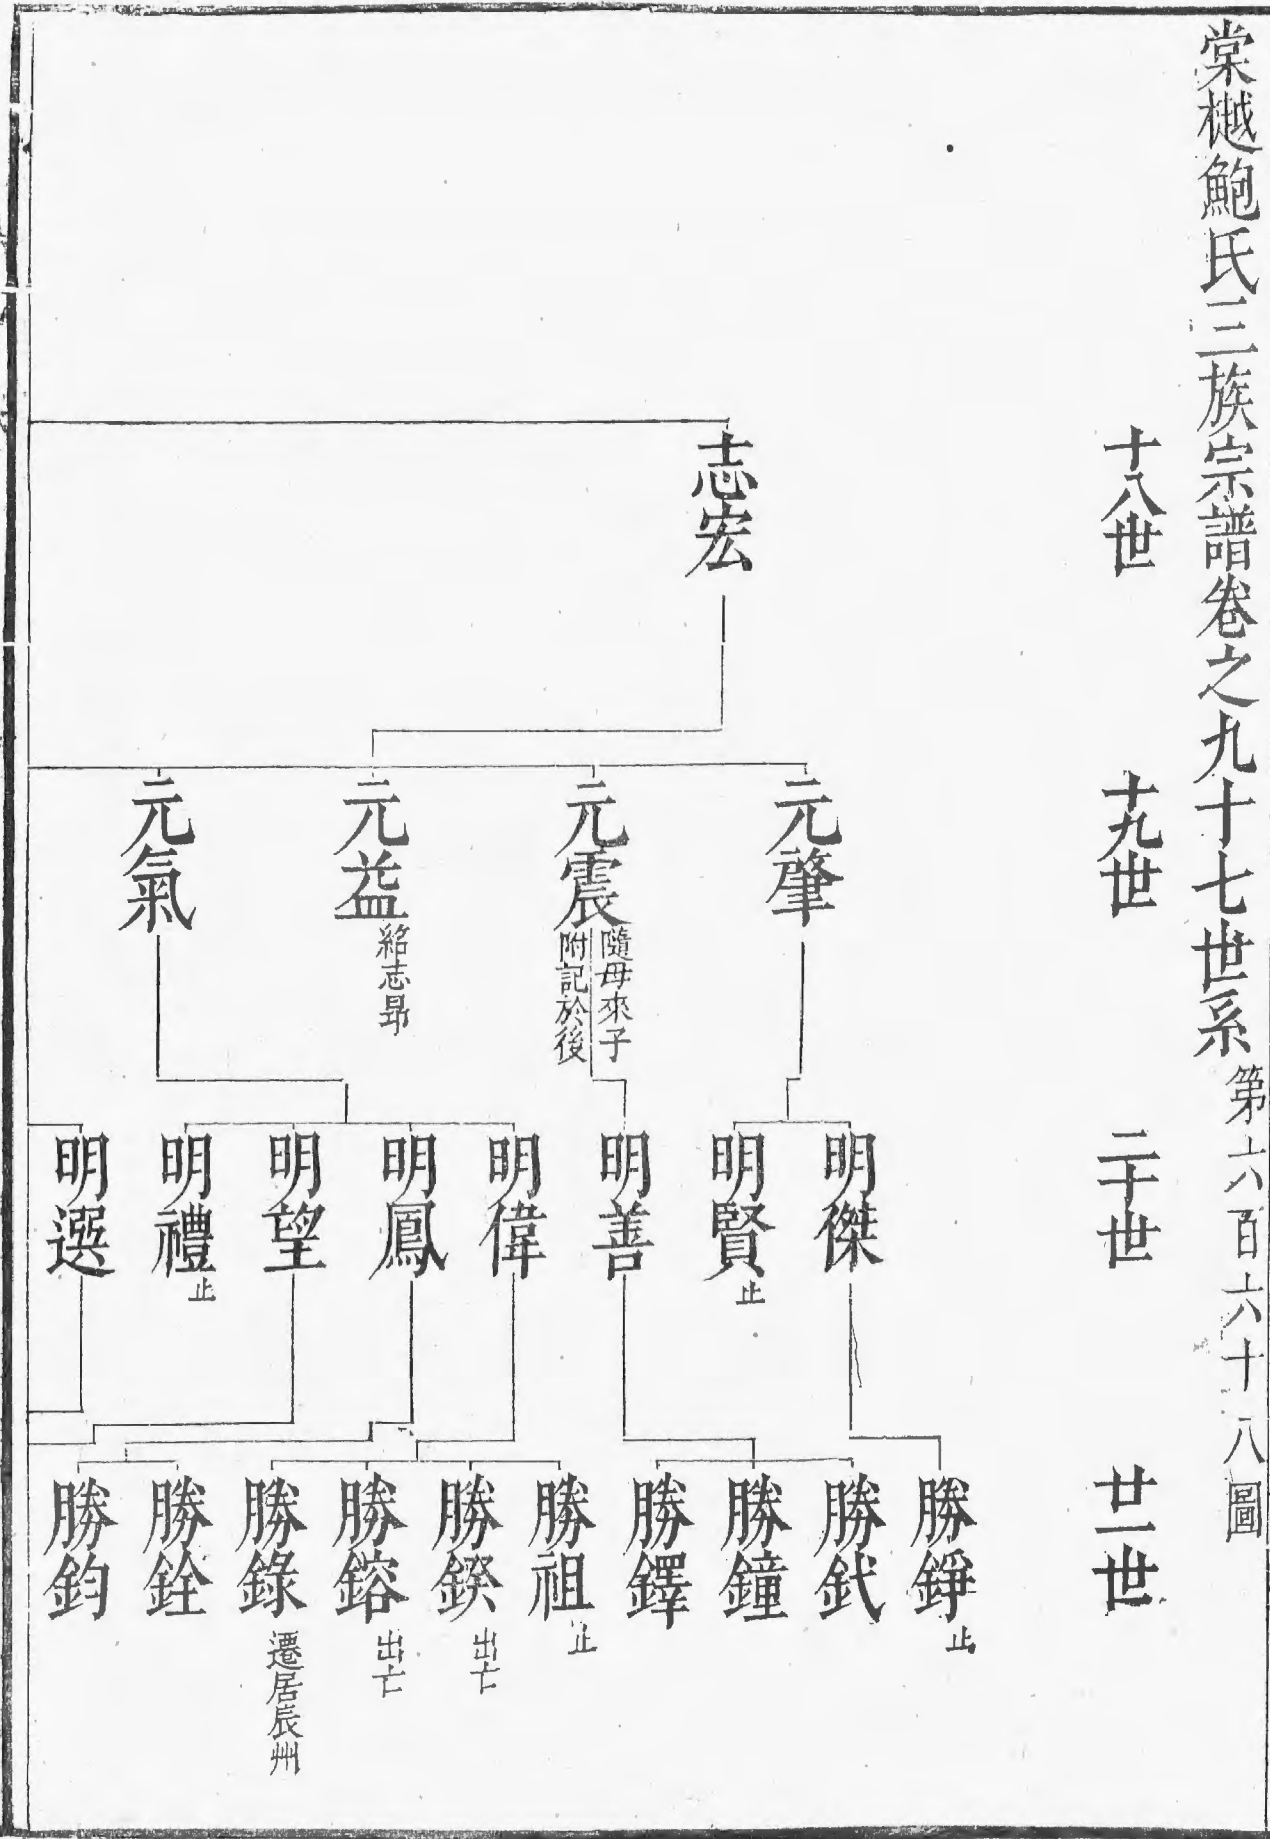 棠樾鮑氏三族宗譜卷之九十七世系第六百六十八圖
十八世
十九世
二十世
廿一世
志宏
元肇
元震
隨母來子
附記於後
元益
紹志昴
元氣
明傑
明賢
止
明善
明偉
明鳳
明望
明禮
止
明選
勝錚
止
勝釴
勝鐘
勝鐸
勝祖
止
勝鍨
出亡
勝鎔
出亡
勝錄
遷居辰州
勝銓
勝鈞